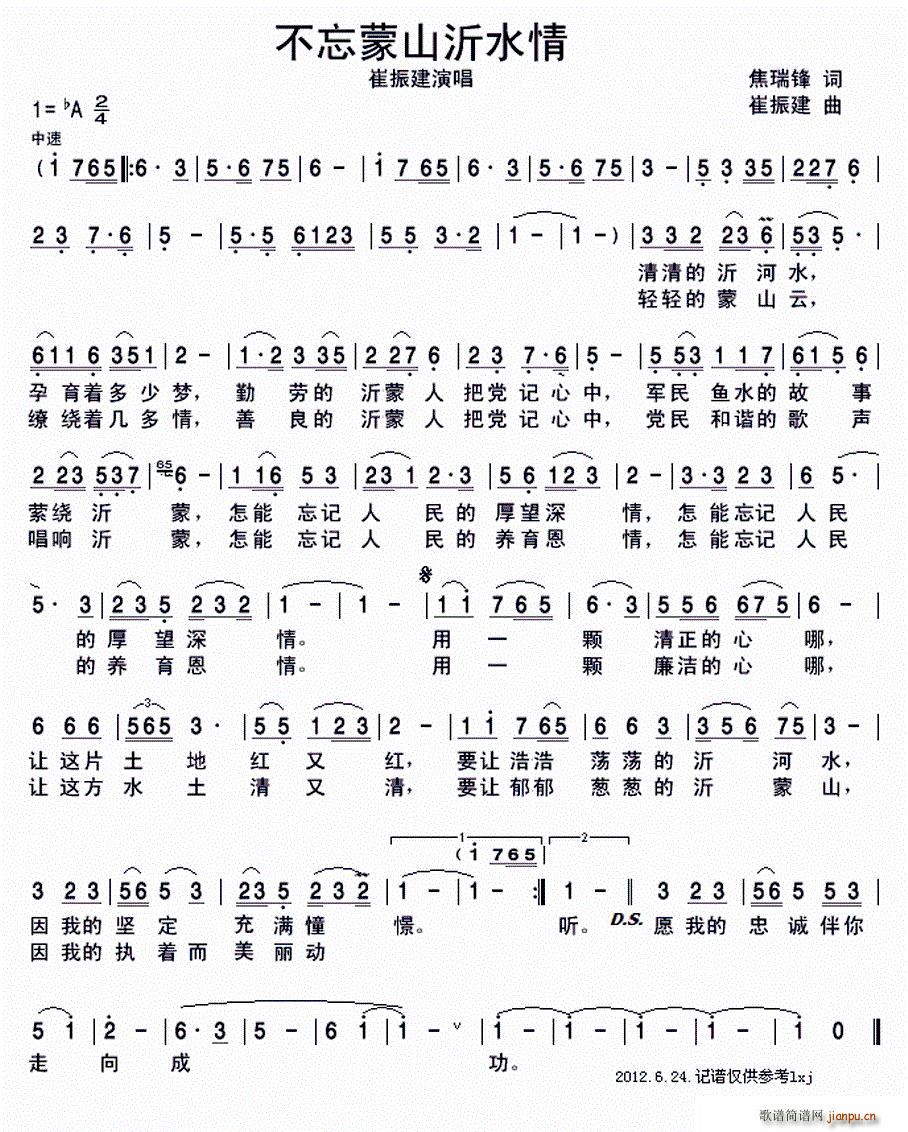 不忘蒙山沂水情
崔振建演唱
焦瑞锋 词
1= ♭A 2/4
崔振建 曲
中速
( i 765 ‖: 6· 3 | 5·6 75 | 6 - | i 7 65 | 6· 3 | 5·6 75 | 3 - | 5 3 35 | 227 6 |
2 3 7·6 | 5 - | 5·5 6123 | 55 3·2 | 1 - | 1 - ) | 332 236 | 53 5· |
清清的沂河水，
轻轻的蒙山云，
6116 351 | 2 - | 1·2 3 35 | 2 27 6 | 2 3 7·6 | 5 - | 5 53 117 | 615 6 |
孕育着多少梦， 勤劳的沂蒙人把党记心中， 军民鱼水的故事
缭绕着几多情， 善良的沂蒙人把党记心中， 党民和谐的歌声
2 23 537 | 65 6 - | 1 16 53 | 23 1 2·3 | 56 123 | 2 - | 3·3 23 | 6 5· |
萦绕沂蒙， 怎能忘记人民的厚望深情， 怎能忘记人民
唱响沂蒙， 怎能忘记人民的养育恩情， 怎能忘记人民
5· 3 | 235 232 | 1 - | 1 - | 11 765 | 6·3 | 556 675 | 6 - |
的厚望深情。 用一颗清正的心哪，
的养育恩情。 用一颗廉洁的心哪，
6 66 | 565 3· | 55 123 | 2 - | 1i 7 65 | 6 63 | 356 75 | 3 - |
3
让这片土地红又红， 要让浩浩荡荡的沂河水，
让这方水土清又清， 要让郁郁葱葱的沂蒙山，
1 2
( i 765 |
3 23 | 56 53 | 235 232 | 1 - | 1 - :‖ 1 - ‖ 3 23 | 56 5 53 |
因我的坚定充满憧憬。 听。 D.S. 愿我的忠诚伴你
因我的执着而美丽动
5 i | 2 - | 6·3 | 5 - | 6 i | i - ∨ | i - | i - | i - | i - | i 0 ‖
走向成功。
2012.6.24.记谱仅供参考lxj
歌谱简谱网 jianpu.cn